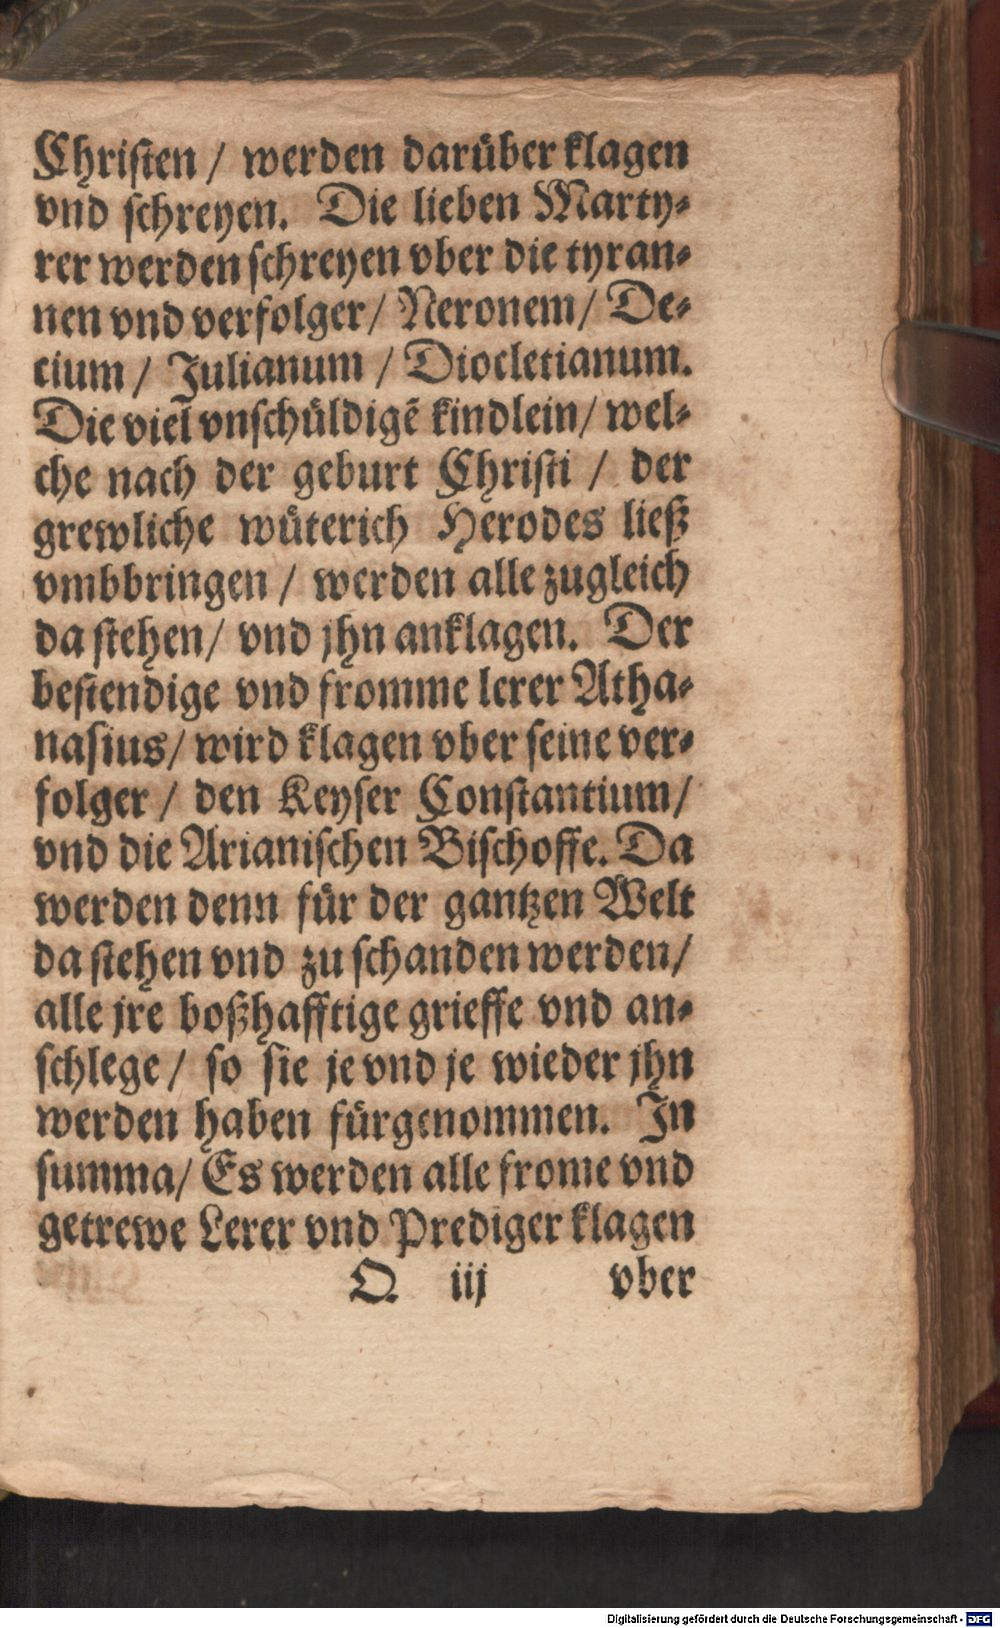 Christen / werden darüber klagen
vnd schreyen. Die lieben Marty-
rer werden schreyen vber die tyran-
nen vnd verfolger / Neronem / De-
cium / Julianum / Diocletianum.
Die viel vnschüldigē kindlein / wel-
che nach der geburt Christi / der
grewliche wüterich Herodes ließ
vmbbringen / werden alle zugleich
da stehen / vnd jhn anklagen. Der
bestendige vnd fromme lerer Atha-
nasius / wird klagen vber seine ver-
folger / den Keyser Constantium /
vnd die Arianischen Bischoffe. Da
werden denn für der gantzen Welt
da stehen vnd zu schanden werden /
alle jre boßhafftige grieffe vnd an-
schlege / so sie je vnd je wieder jhn
werden haben fürgenommen. In
summa / Es werden alle frome vnd
getrewe Lerer vnd Prediger klagen
O iij vber
Digitalisierung gefördert durch die Deutsche Forschungsgemeinschaft - DFG